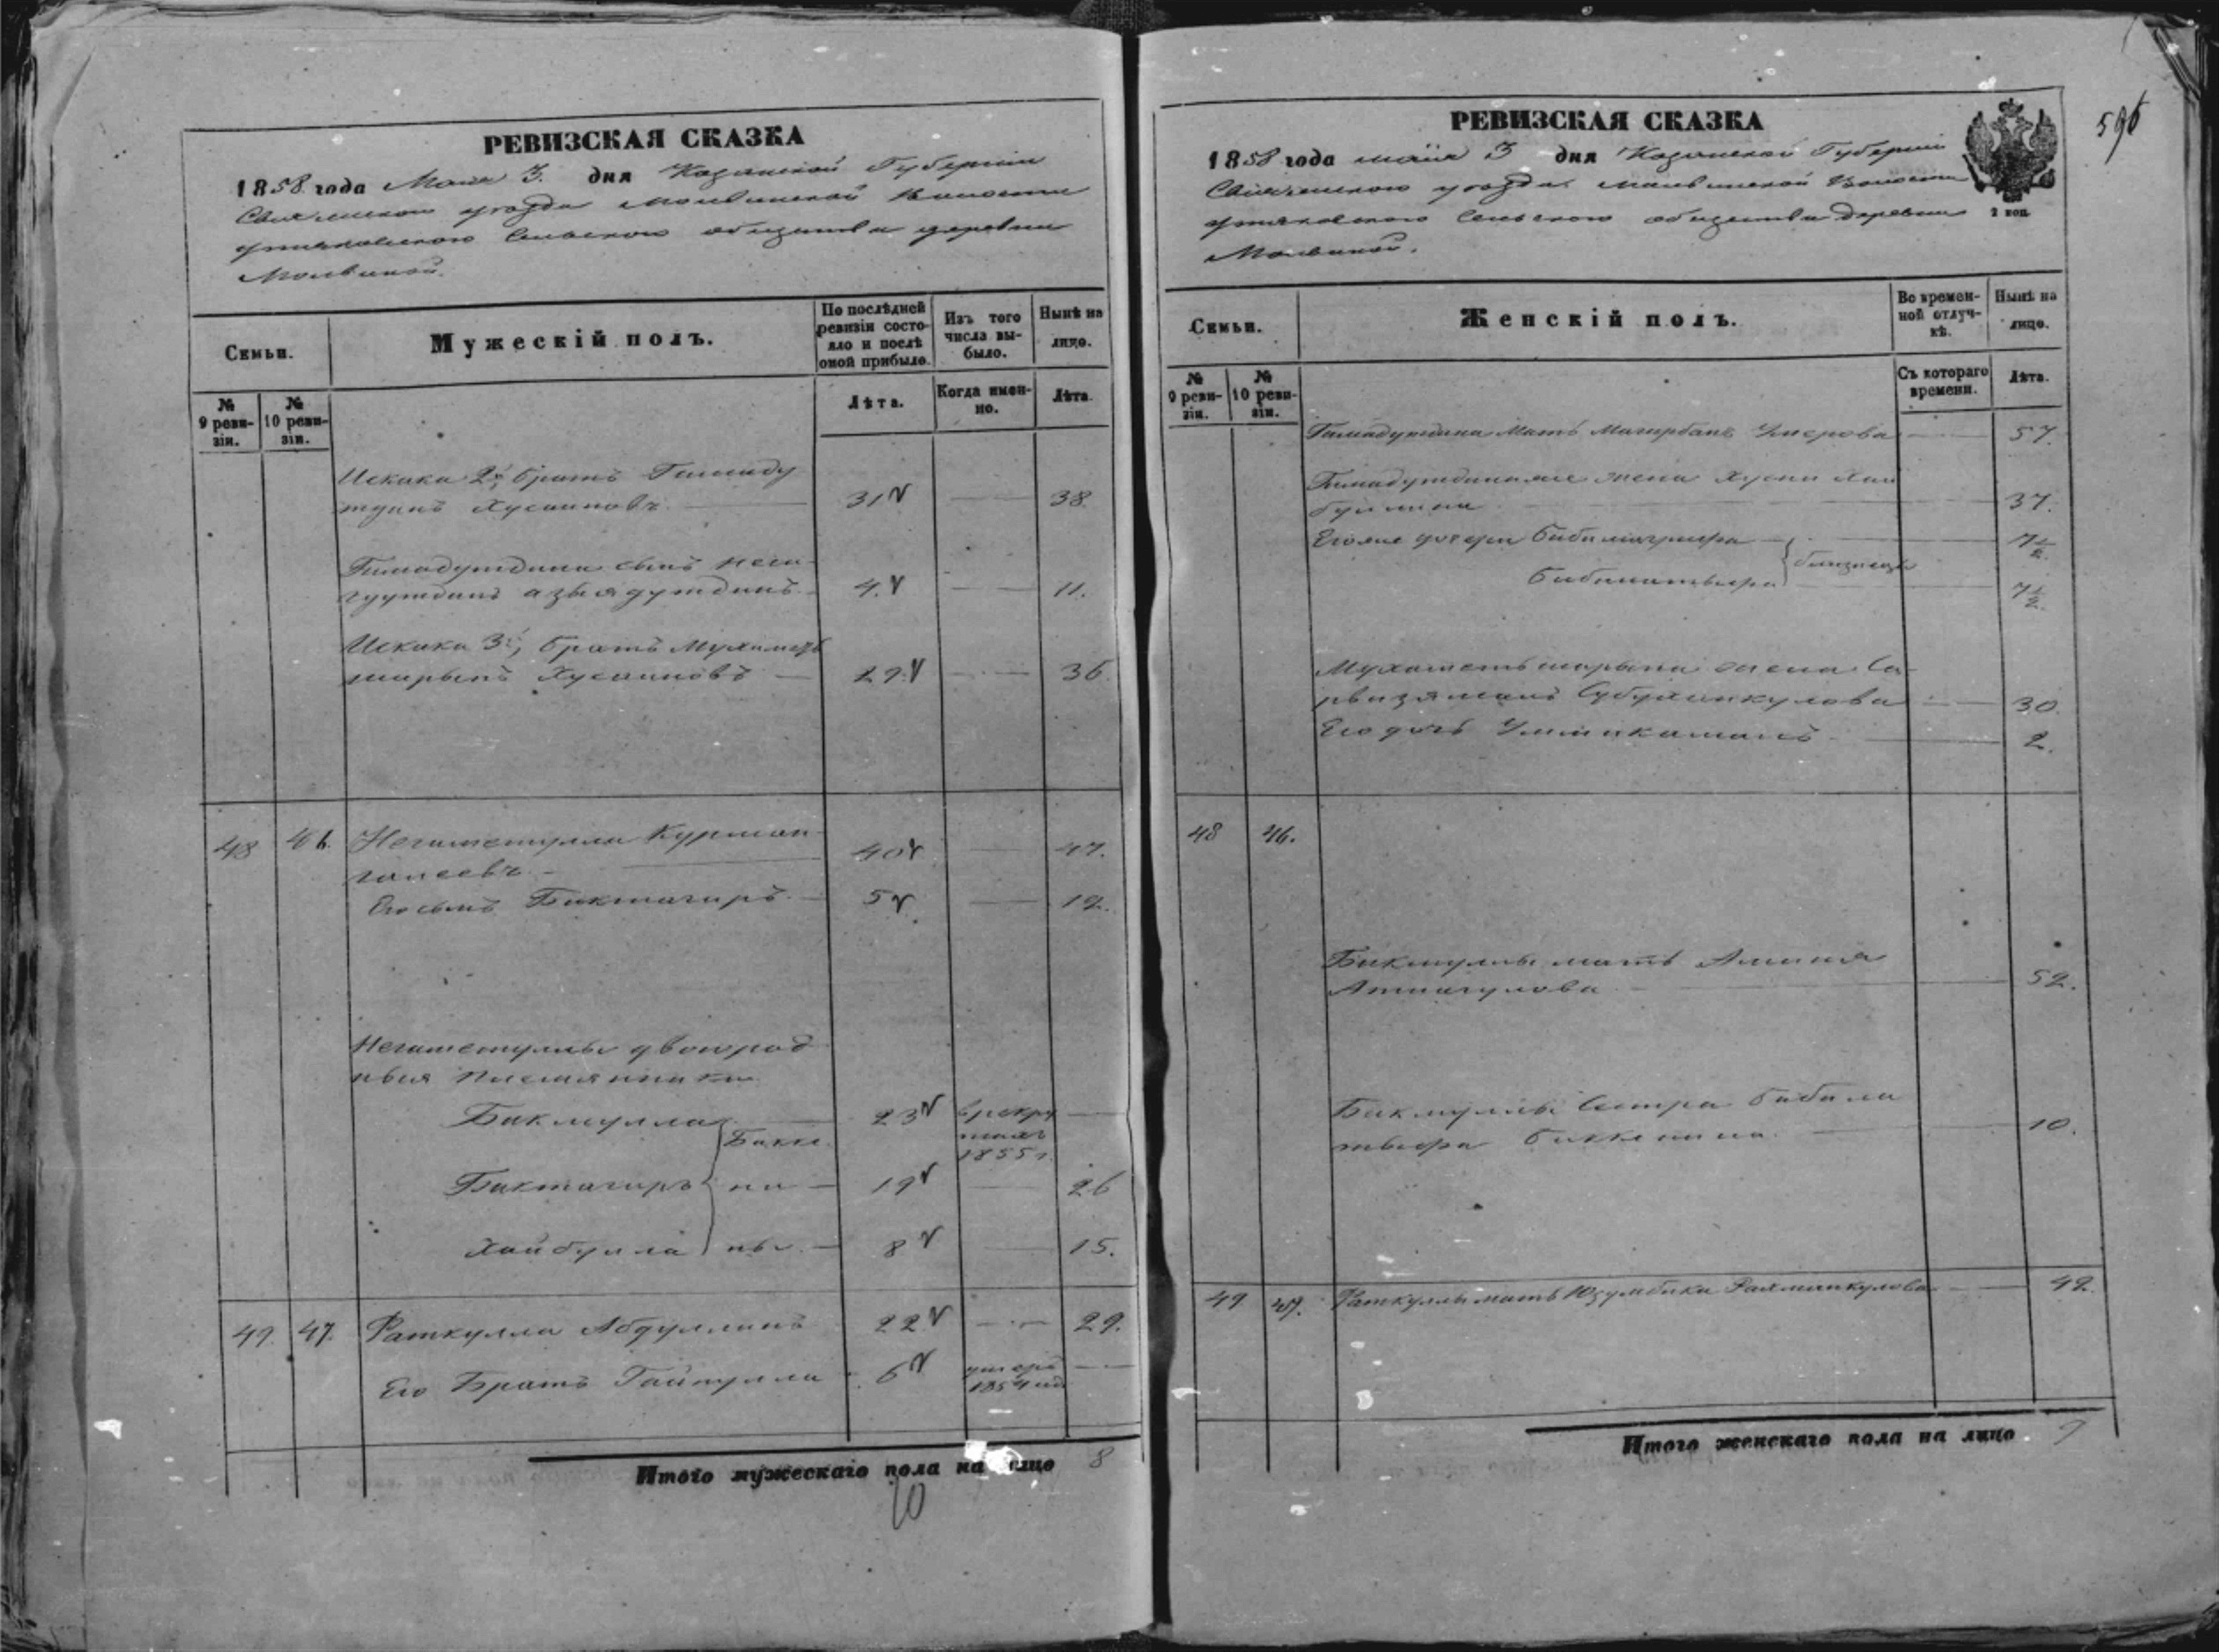 РЕВИЗСКАЯ СКАЗКА
1858 года Мая 3. дня Казанской Губернии
Свияжскаго уезда Молвинской Волости
Утяковскаго Сельскаго общества деревни
Молвиной.
Семьи.
Мужескій полъ.
По послѣдней ревизіи состояло и послѣ оной прибыло.
Изъ того числа выбыло.
Нынѣ на лицо.
№ 9 ревизіи.
№ 10 ревизіи.
Лѣта.
Когда именно.
Лѣта.
Искака 2й, братъ Гимаду
тдинъ Хусаиновъ. 31 — 38.
Гимадутдина сынъ
4. — 11.
Искака 3й, братъ Мухаметъ
шарыпъ Хусаиновъ — 29. — 36.
48 46. Негаметулла Курман
галеевъ. — 40 — 47.
Его сынъ Биктагиръ. — 5 — 12.
Негаметуллы двоюрод
ныя племянники
Бикмулла — 23 в рекру —
Бикке
тахъ
1855 г.
Биктагиръ ни — 19 — 26
Хайбулла ны. — 8 — 15.
49. 47. Фаткулла Абдуллинъ 22 — 29.
Его Братъ Гайнулла 6 умеръ —
1854 год
Итого мужескаго пола на лицо 8
10
РЕВИЗСКАЯ СКАЗКА
596
1858 года мая 3 дня Казанской Губернии
Свияжскаго уезда Молвинской Волости
Утяковскаго Сельскаго общества деревни
2 коп.
Молвиной.
Семьи.
Женскій полъ.
Во временной отлучкѣ.
Нынѣ на лицо.
№ 9 ревизіи.
№ 10 ревизіи.
Съ котораго времени.
Лѣта.
Гимадутдина Мать Магирбану Умерова — 57.
Гимадутдина же жена Хусни Хаи
буллина — 37.
Его же дочери — 7½.
близнецы
7½.
Мухаметшарыпа жена Са
30.
Его дочь — 2.
48 46.
Бикмуллы мать Амина
Атнагулова — 52.
Бикмуллы Сестра Биби
Биккенина. — 10.
49 47. Фаткуллы мать Юзумбика Рахманкулова — 49.
Итого женскаго пола на лицо. 9